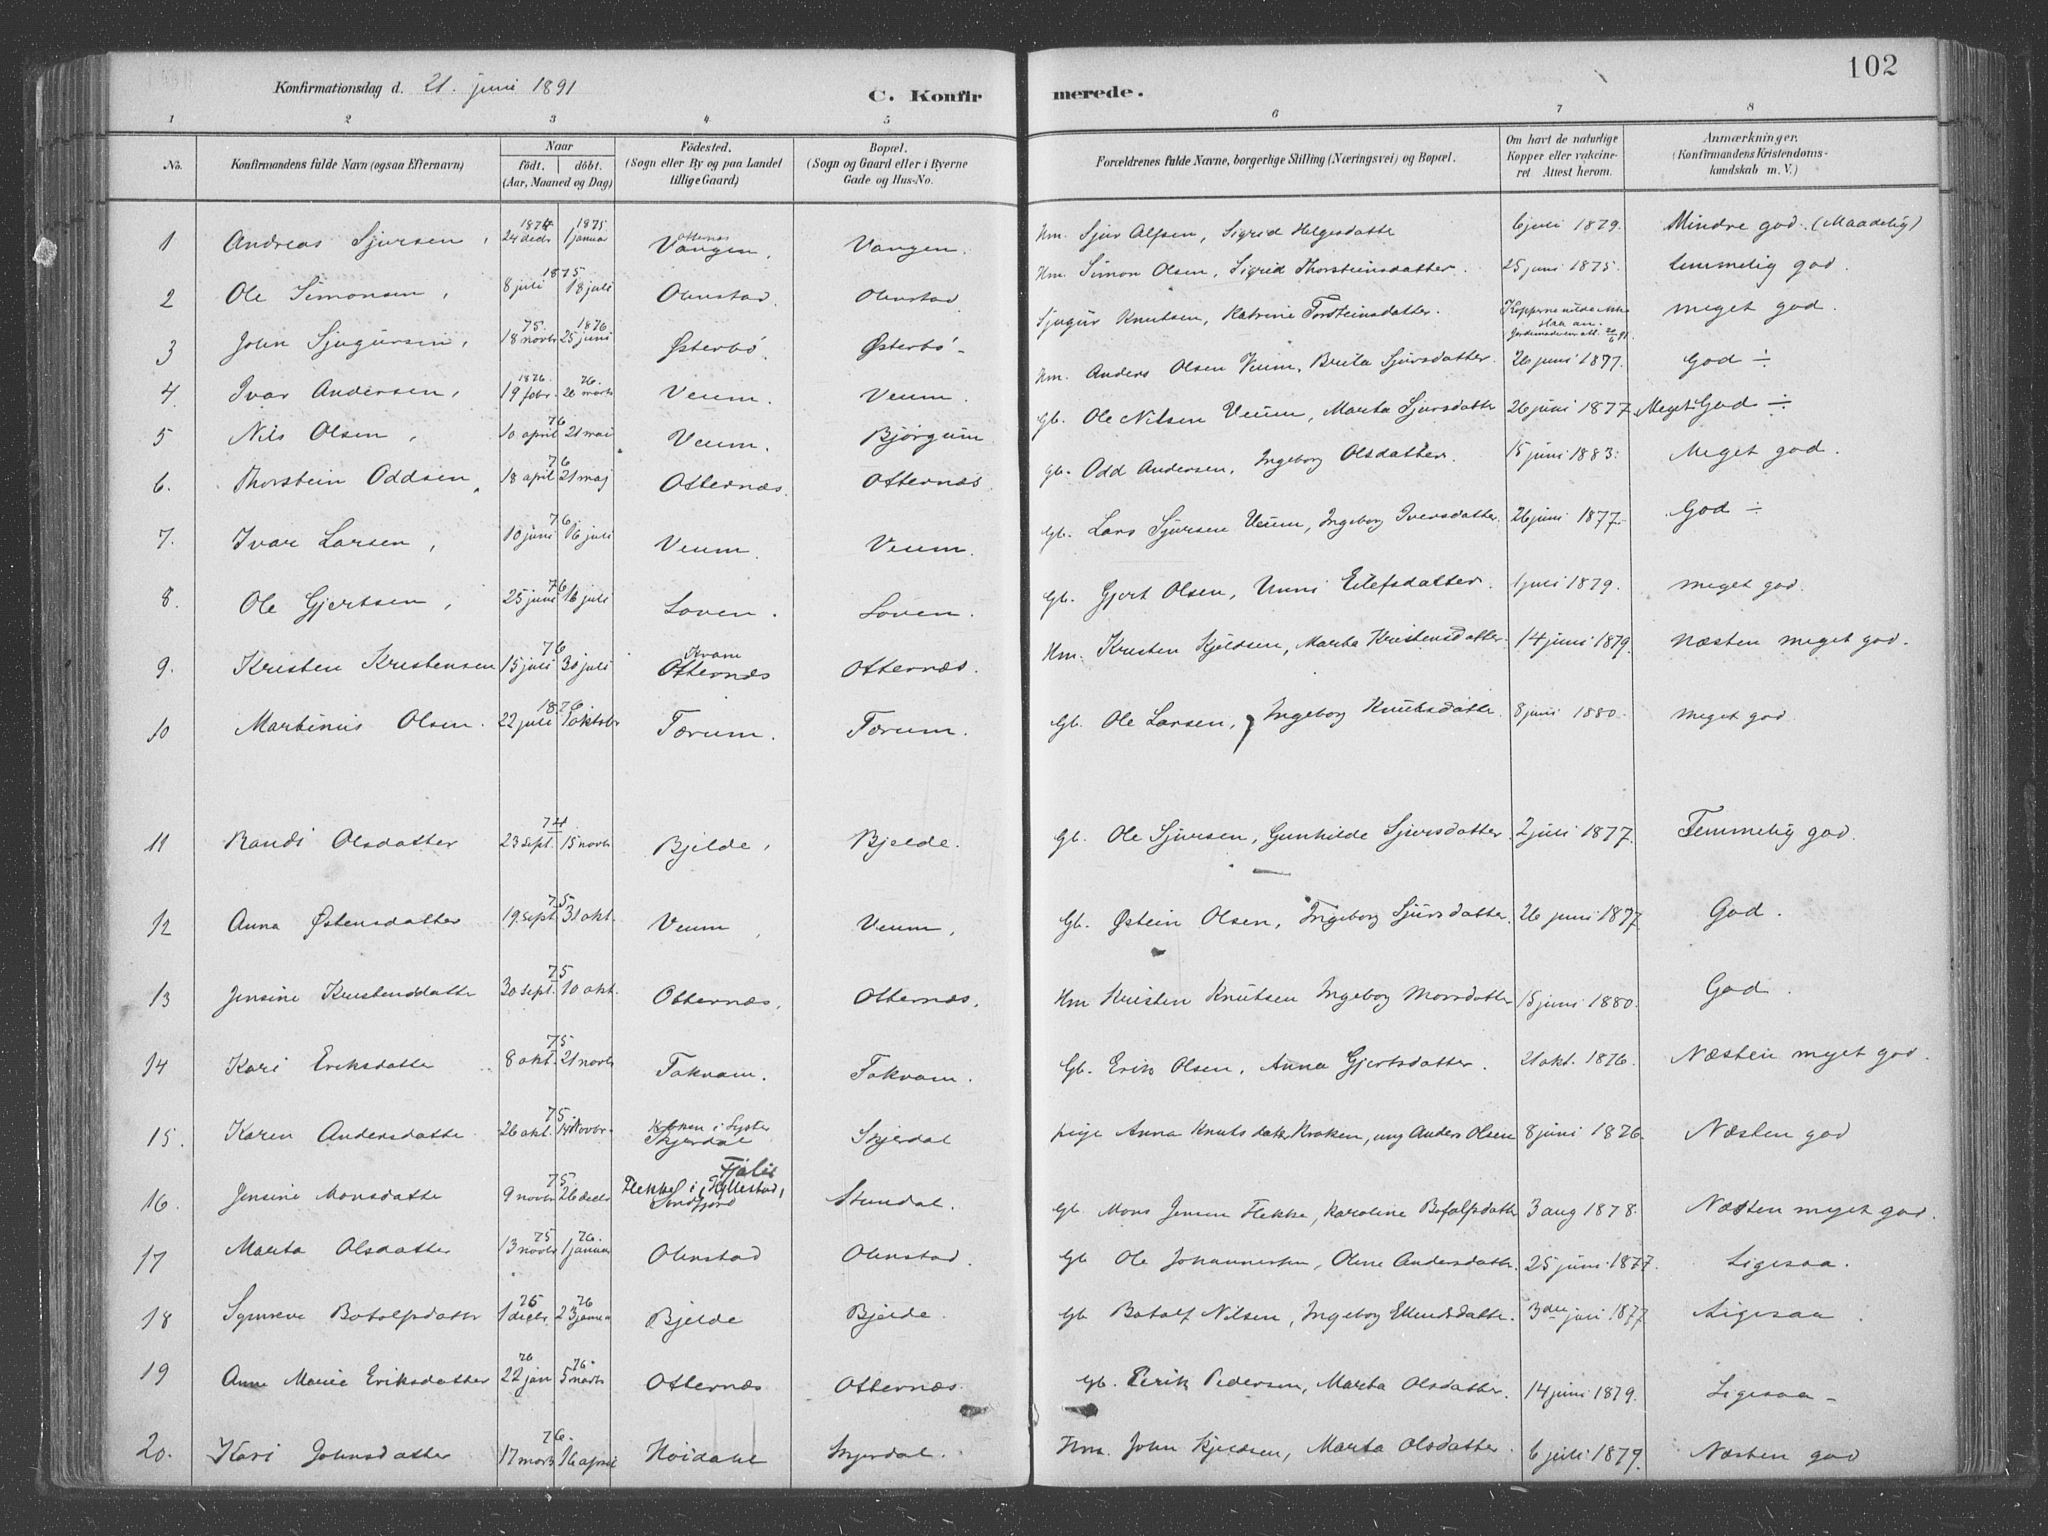 102
Konfirmationsdag d. 21. juni 1891
C. Konfirmerede.
1 2 3 4 5 6 7 8
No. Konfirmandens fulde Navn (ogsaa Efternavn) Naar födt. döbt. (Aar, Maaned og Dag) Födested. (Sogn eller By og paa Landet tillige Gaard) Bopæl. (Sogn og Gaard eller i Byerne Gade og Hus-No. Forældrenes fulde Navne, borgerlige Stilling (Næringsvei) og Bopæl. Om havt de naturlige Kopper eller vakcineret Attest herom. Anmærkninger. (Konfirmandens Kristendomskundskab m. V.)
1 Andreas Sjursen, 1874 24 decbr 1875 1 januar Otternæs Vangen, Vangen. Hm. Sjur Alfsen, Sigrid Helgesdatte 6 juli 1879. Mindre god. (Maadelig)
2 Ole Simonsen, 1875 8 juli 18 juli Ohnstad. Ohnstad Hm. Simon Olsen, Sigrid Thorsteinsdatter. 25 juni 1875. temmelig god.
3 John Sjugursen, 75. 18 novbr 1876 25 juni Østerbø. Østerbø. Sjugur Knutsen, Katrine Torsteinsdatter. Kopperne vilde ikke slaa an. meget god.
4. Ivar Andersen, 1876 19 febr. 76. 26 marts Veum. Veum. Hm. Anders Olsen Veum, Brita Sjursdatter. 26 juni 1877. God ÷
5 Nils Olsen, 76 10 april 21 mai Veum. Bjørgum Gb. Ole Nilsen Veum, Marta Sjursdatter 26 juni 1877. Meget God ÷
6. Thorstein Oddsen, 76 18 april 21 maj Otternæs. Otternæs Gb. Odd Andersen, Ingeborg Olsdatter. 15 juni 1883. Meget god.
7. Ivar Larsen, 76. 10 juni 16 juli Veum. Veum. Gb. Lars Sjursen Veum, Ingeborg Iversdatter. 26 juni 1877. God ÷
8. Ole Gjertsen, 76 25 juni 16 juli Loven. Loven. Gb. Gjert Olsen, Unni Eilefsdatter. 1 juli 1879. meget god.
9. Kristen Kristensen 76 15 juli 30 juli Kvam Otternæs Otternæs. Hm. Kristen Kjeldsen, Marta Kristensdatter. 14 juni 1879. næsten meget god.
10 Martinus Olsen. 1876 22 juli 1 oktobr Tærum. Tærum. Gb. Ole Larsen, Ingeborg Knutsdatte. 8 juni 1880. meget god.
11 Randi Olsdatter 74 23 sept. 15 novbr Bjelde, Bjelde. Gb. Ole Sjursen, Gunhilde Sjursdatter 2 juli 1877. Temmelig god.
12 Anna Østensdatter 75 19 sept. 31 okt. Veum, Veum, Gb. Østein Olsen, Ingeborg Sjursdatter. 26 juni 1877 God.
13 Jensine Kristensdatte 75 30 sept. 10 okt. Otternæs, Otternæs, Hm Kristen Knutsen Ingeborg Monsdatter 15 juni 1880. God.
14 Kari Eriksdatte 75 8 okt. 21 novbr Takvam. Takvam. Gb. Erik Olsen, Anna Gjertsdatter. 21 okt. 1876. Næsten meget god.
15. Karen Andersdatte 75. 26 okt. 14 novbr. Kroken i Lyster Skjerdal Skjerdal pige Anna Knutsdatter Kroken, ung Anders Olsen 8 juni 1876. Næsten god
16. Jensine Monsdatte 75. 9 novbr 26 decbr Fjaler Flekke i Hyllestad, Søndfjord Stundal. Gb. Mons Jensen Flekke, Karoline Botolfsdatte 3 aug 1878. Næsten meget god.
17 Marta Olsdatter 75 13 novbr 76. 1 januar Ohnstad Ohnstad. Gb Ole Johannessen, Oline Andersdatte. 25 juni 1877. Ligesaa.
18 Synneve Botolfsdatte 75 1 decbr. 76 23 januar Bjelde Bjelde. Gb Botolf Nilsen, Ingeborg Ellendsdatte. 3die juli 1877 Ligesaa.
19 Anne Marie Eriksdatter 76 22 jan 76. 5 marts Otternæs Otternæs. Gb. Eirik Pedersen, Marta Olsdatter. 14 juni 1879. Ligesaa
20. Kari Johnsdatter 76. 17 marts 16 april Høidahl Skjerdal. Hm. John Kjeldsen, Marta Olsdatter. 6 juli 1879. Næsten god